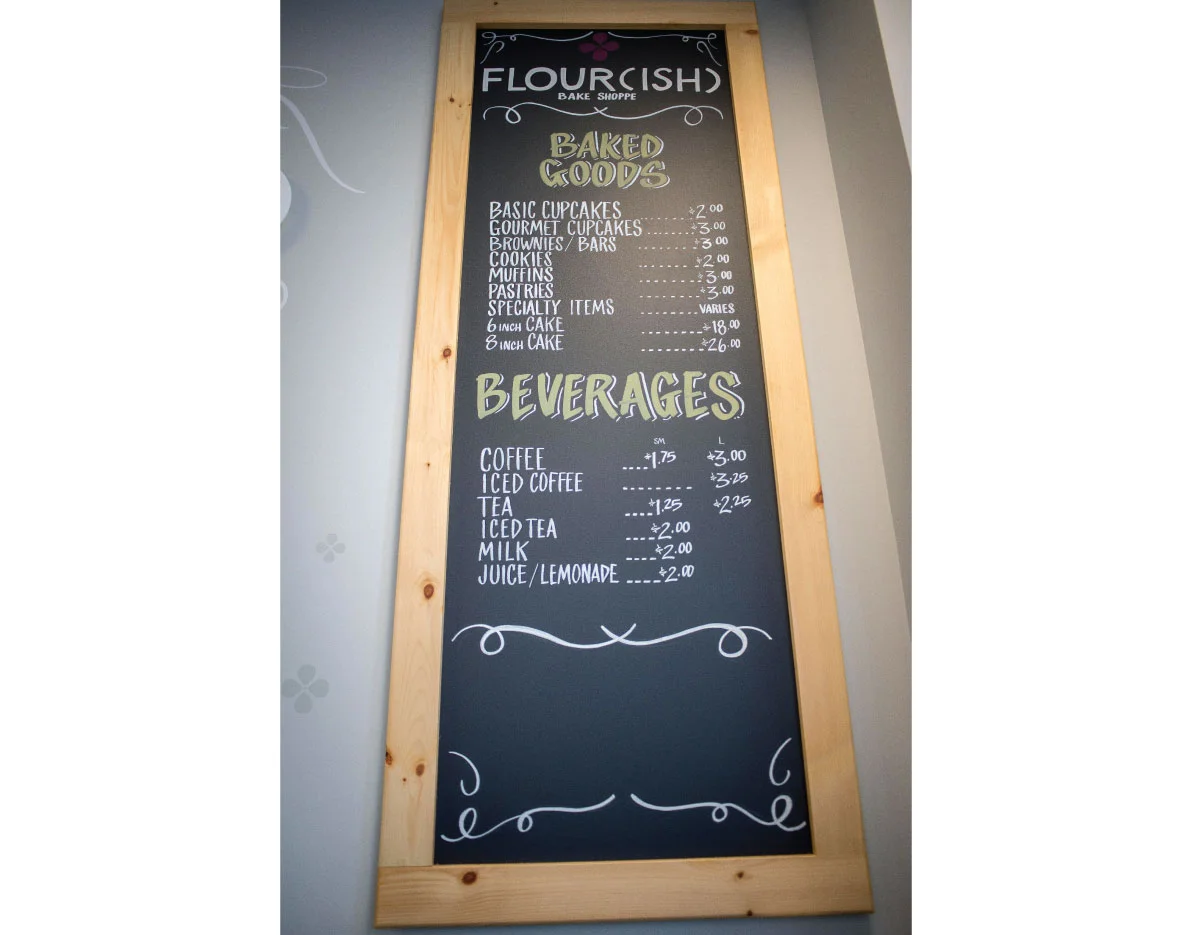 FLOUR(ISH)
BAKE SHOPPE
BAKED
GOODS
BASIC CUPCAKES ........$2.00
GOURMET CUPCAKES .......$3.00
BROWNIES/BARS ........$3.00
COOKIES ........$2.00
MUFFINS ........$3.00
PASTRIES ........$3.00
SPECIALTY ITEMS ........VARIES
6 INCH CAKE ........$18.00
8 INCH CAKE ........$26.00
BEVERAGES
SM L
COFFEE ....$1.75 $3.00
ICED COFFEE ........ $3.25
TEA ....$1.25 $2.25
ICED TEA ....$2.00
MILK ....$2.00
JUICE/LEMONADE ....$2.00